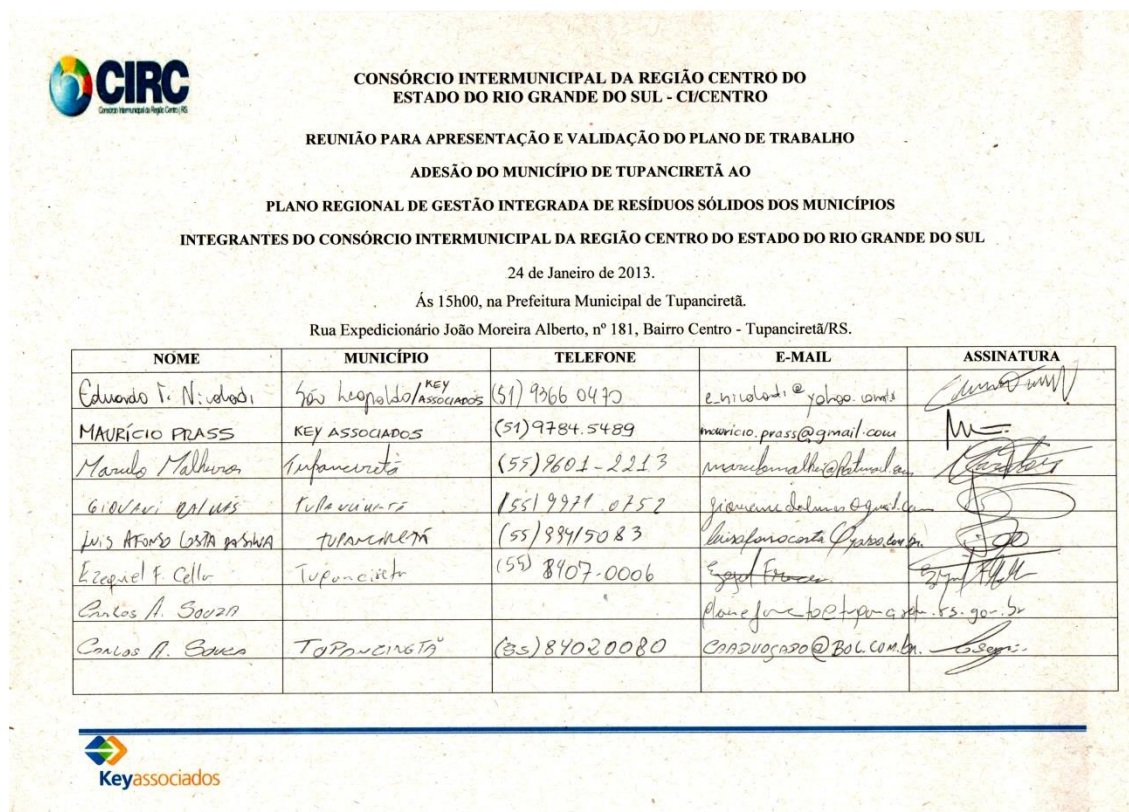 CIRC
Consórcio Intermunicipal da Região Centro | RS
CONSÓRCIO INTERMUNICIPAL DA REGIÃO CENTRO DO
ESTADO DO RIO GRANDE DO SUL - CI/CENTRO
REUNIÃO PARA APRESENTAÇÃO E VALIDAÇÃO DO PLANO DE TRABALHO
ADESÃO DO MUNICÍPIO DE TUPANCIRETÃ AO
PLANO REGIONAL DE GESTÃO INTEGRADA DE RESÍDUOS SÓLIDOS DOS MUNICÍPIOS
INTEGRANTES DO CONSÓRCIO INTERMUNICIPAL DA REGIÃO CENTRO DO ESTADO DO RIO GRANDE DO SUL
24 de Janeiro de 2013.
Ás 15h00, na Prefeitura Municipal de Tupanciretã.
Rua Expedicionário João Moreira Alberto, nº 181, Bairro Centro - Tupanciretã/RS.
NOME MUNICÍPIO TELEFONE E-MAIL ASSINATURA
Eduardo T. Nicolodi São Leopoldo/KEY ASSOCIADOS (51) 9366 0470
MAURÍCIO PRASS KEY ASSOCIADOS (51) 9784.5489 mauricio.prass@gmail.com
Tupanciretã (55) 9601-2213
(55) 9971.0752
LUIS AFONSO COSTA DA SILVA TUPANCIRETÃ (55) 99915083
Ezequiel F. Tupanciretã (55) 8407-0006
Carlos A. Souza
Carlos A. Souza TUPANCIRETÃ (55) 84020080 CAADVOGADO@BOL.COM.BR
Keyassociados